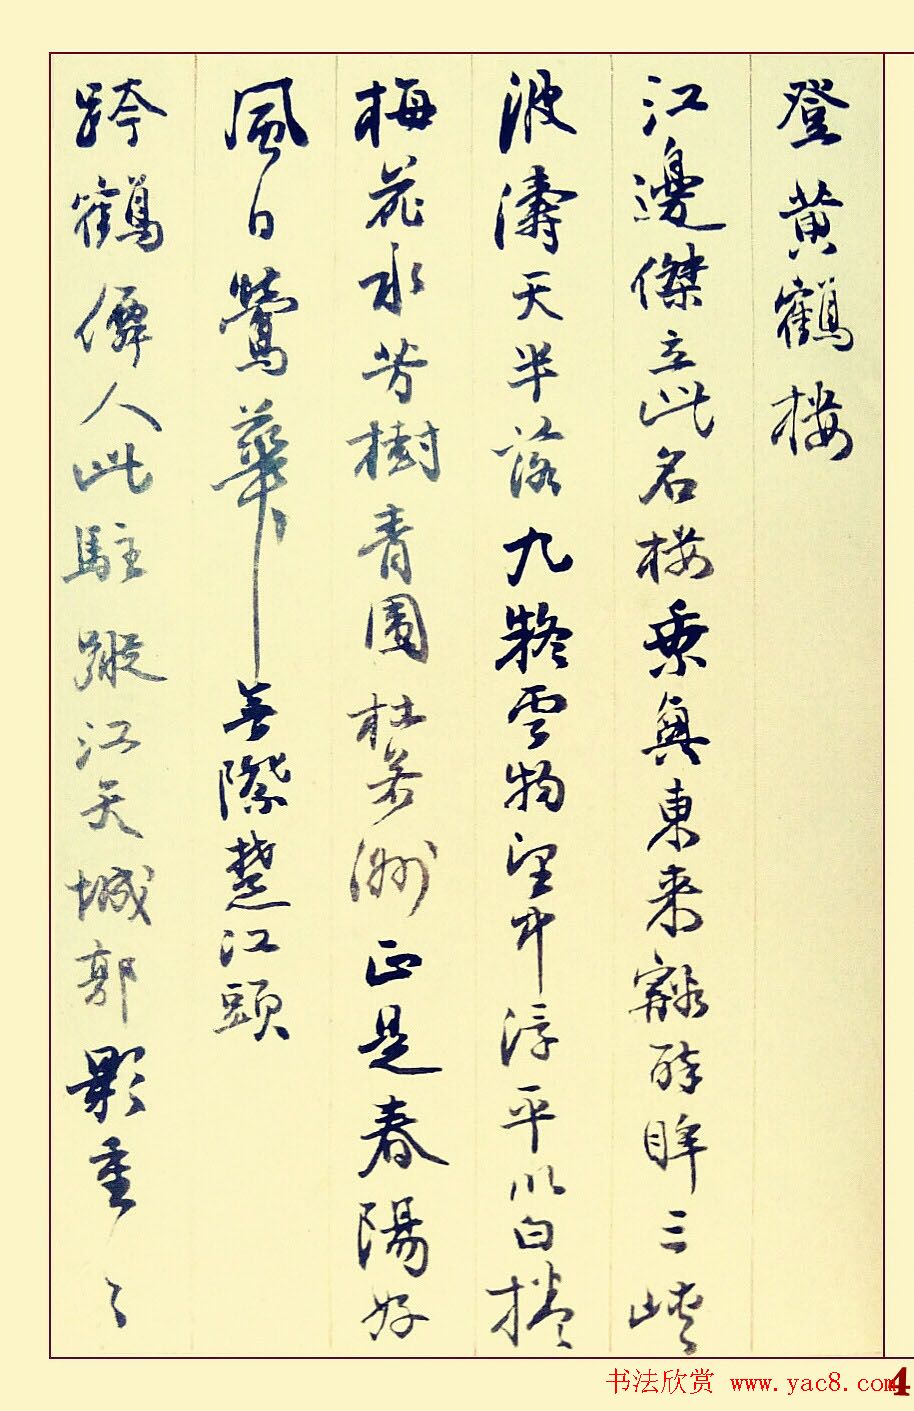 登黄鶴楼
江邊傑立此名楼乘興東来豁醉眸三峽
波濤天半落九疑雲物望中浮平川白捲
梅花水芳樹青圍杜若洲正是春陽好
風日鶯華無際楚江頭
跨鶴僊人此駐蹤江天城郭影重々
书法欣赏 www.yac8.com
4